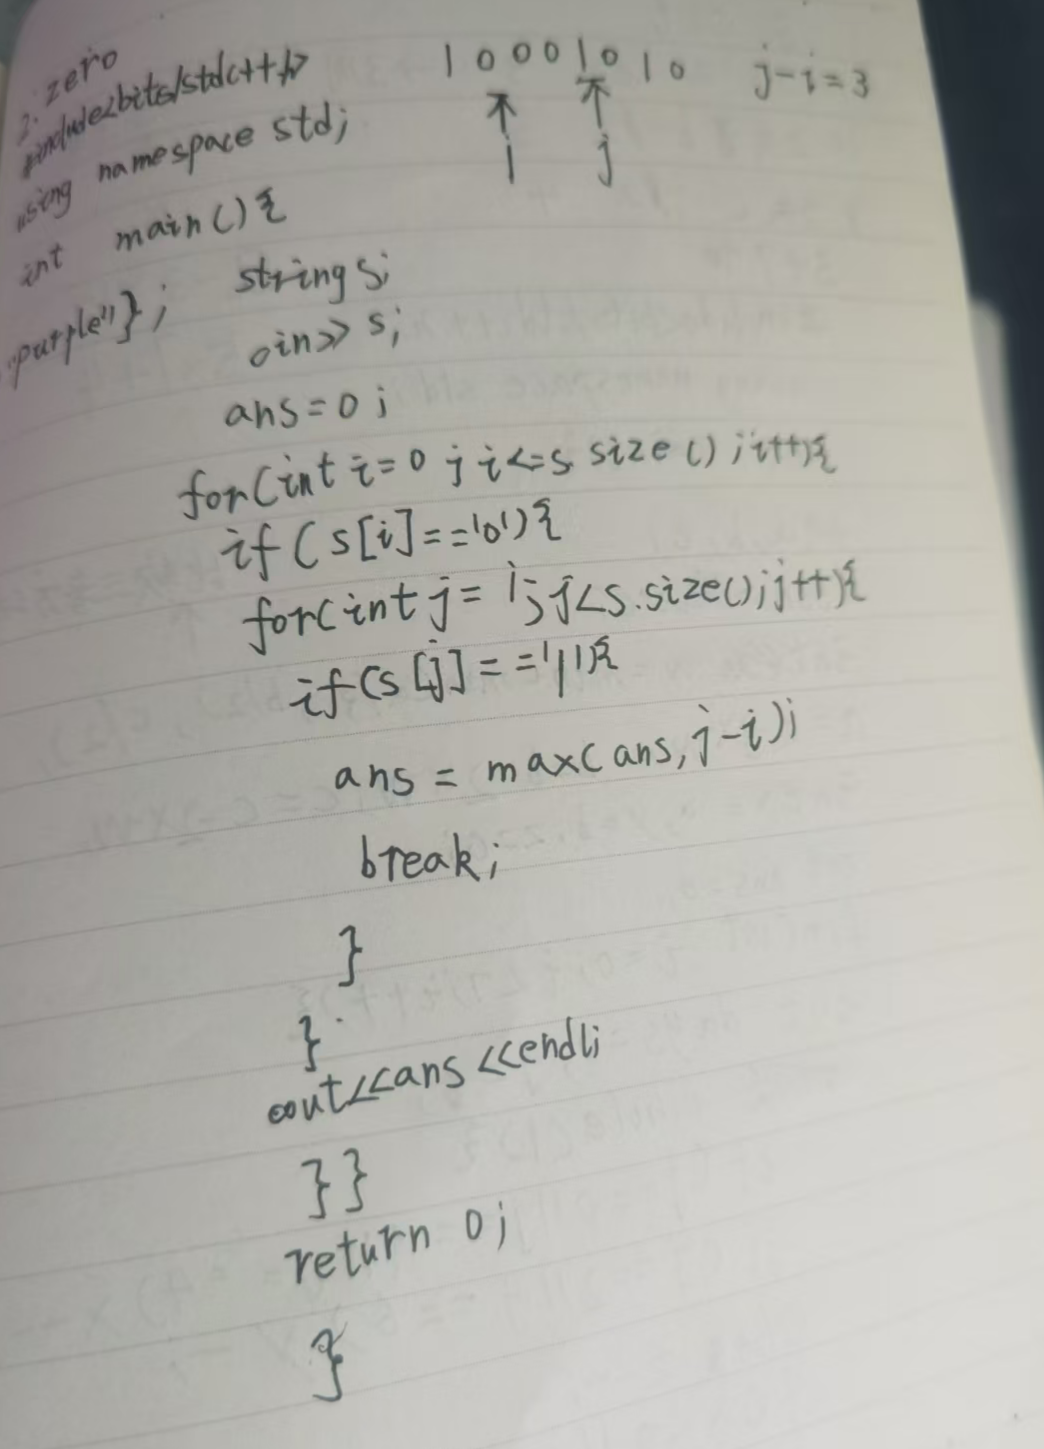 2. zero
#include<bits/stdc++.h>
using namespace std;
int main(){
purple"};
string s;
cin>>s;
ans=0;
for(int i=0;i<=s.size();i++){
if(s[i]=='0'){
for(int j=i;j<s.size();j++){
if(s[j]=='1'){
ans = max(ans,j-i);
break;
}
}
cout<<ans<<endl;
}}
return 0;
}
1 0 0 0 1 0 1 0 j-i=3
i j